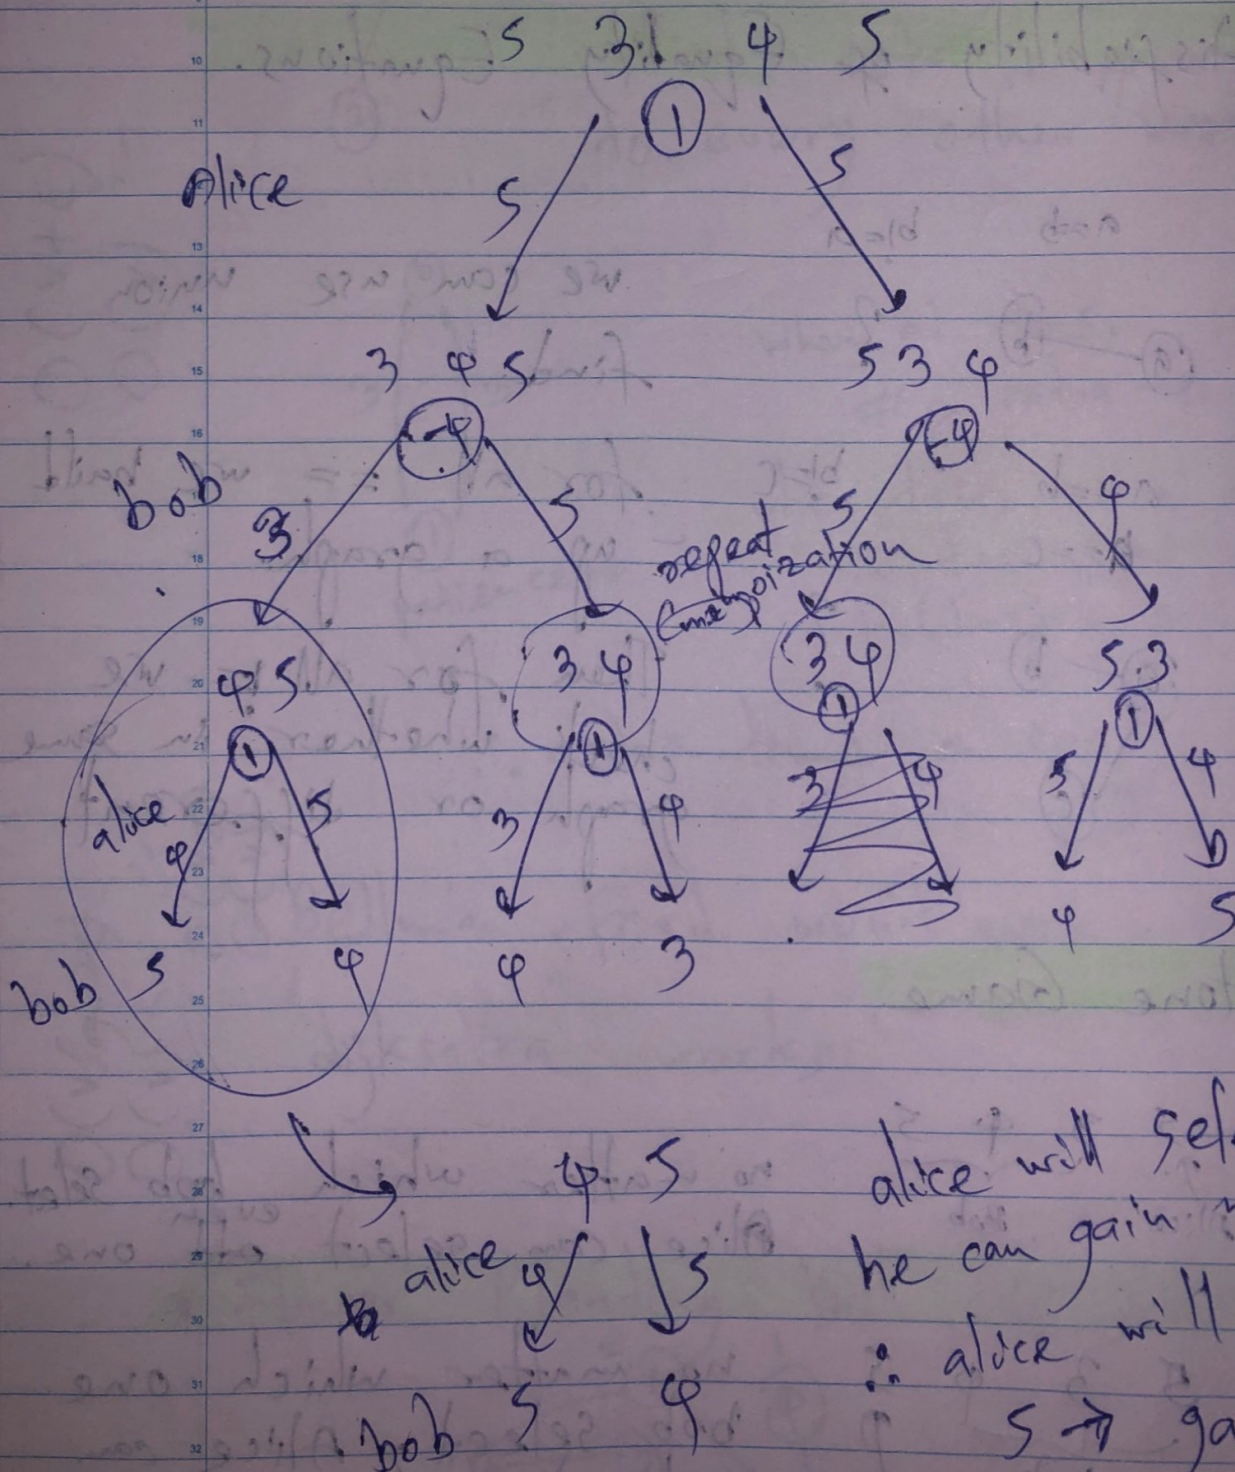 5 3 4 5
1
Alice
5 5
3 4 5 5 3 4
-4 -4
bob
3 5 5 4
repeat
(memoization
4 5 3 4 3 4 5 3
1 1 1 1
alice
4 5 3 4 3 4 5 4
bob 5 4 4 3 4 5
4 5
alice will
alice 4 5
he can gain
∴ alice will
bob 5 4
5 →